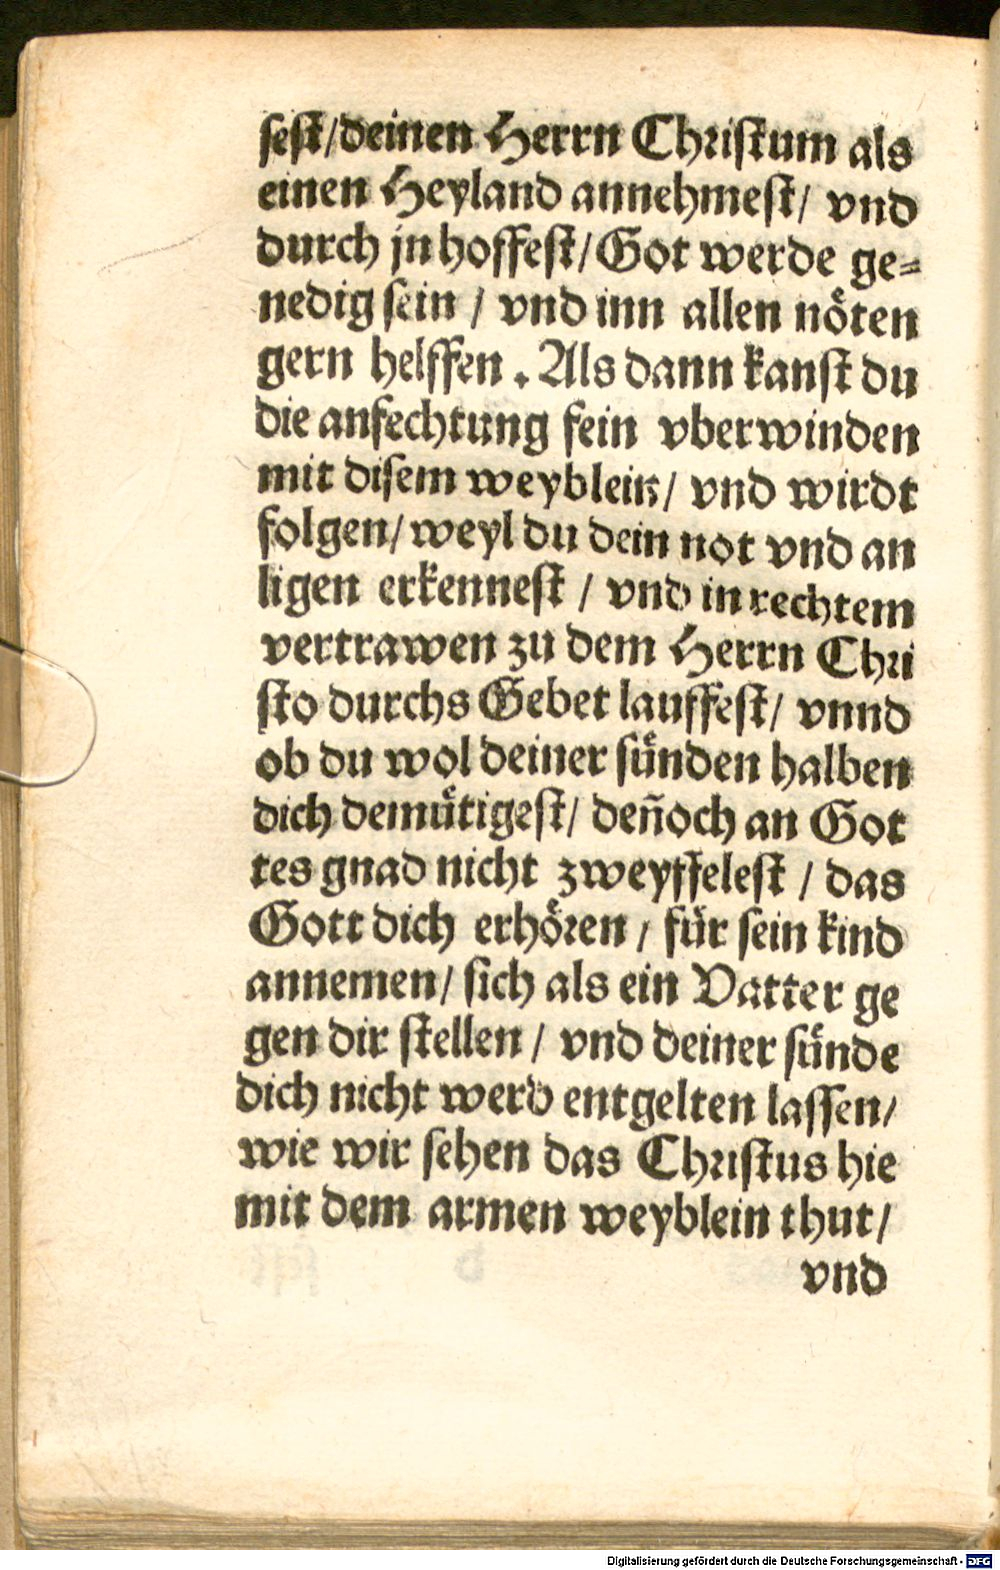 sest/deinen Herrn Christum als
einen Heyland annehmest/ vnd
durch jn hoffest/Got werde ge-
nedig sein / vnd inn allen nöten
gern helffen. Als dann kanst du
die anfechtung fein vberwinden
mit disem weyblein/ vnd wirdt
folgen/weyl du dein not vnd an
ligen erkennest / vnd in rechtem
vertrawen zu dem Herrn Chri
sto durchs Gebet lauffest/ vnnd
ob du wol deiner sünden halben
dich demütigest/ deñoch an Got
tes gnad nicht zweyffelest / das
Gott dich erhören / für sein kind
annemen/ sich als ein Vatter ge
gen dir stellen / vnd deiner sünde
dich nicht werd entgelten lassen/
wie wir sehen das Christus hie
mit dem armen weyblein thut/
vnd
Digitalisierung gefördert durch die Deutsche Forschungsgemeinschaft - DFG